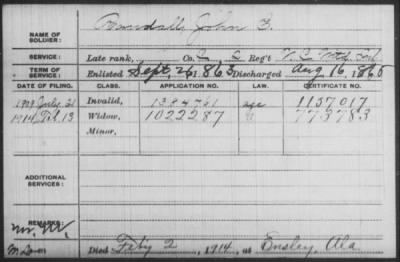 NAME OF SOLDIER: Randall, John B.
SERVICE: Late rank, Co. C 2 Reg't N.C. Mtd. Inf.
TERM OF SERVICE: Enlisted Sept 26, 1863 Discharged Aug 16, 1865
DATE OF FILING. CLASS. APPLICATION NO. LAW. CERTIFICATE NO.
1909 July 21 Invalid, 1384761 age 1157017
1914 Feb. 13 Widow, 1022287 773783
Minor,
ADDITIONAL SERVICES:
REMARKS:
Died Feby 2, 1914, at Ensley, Ala